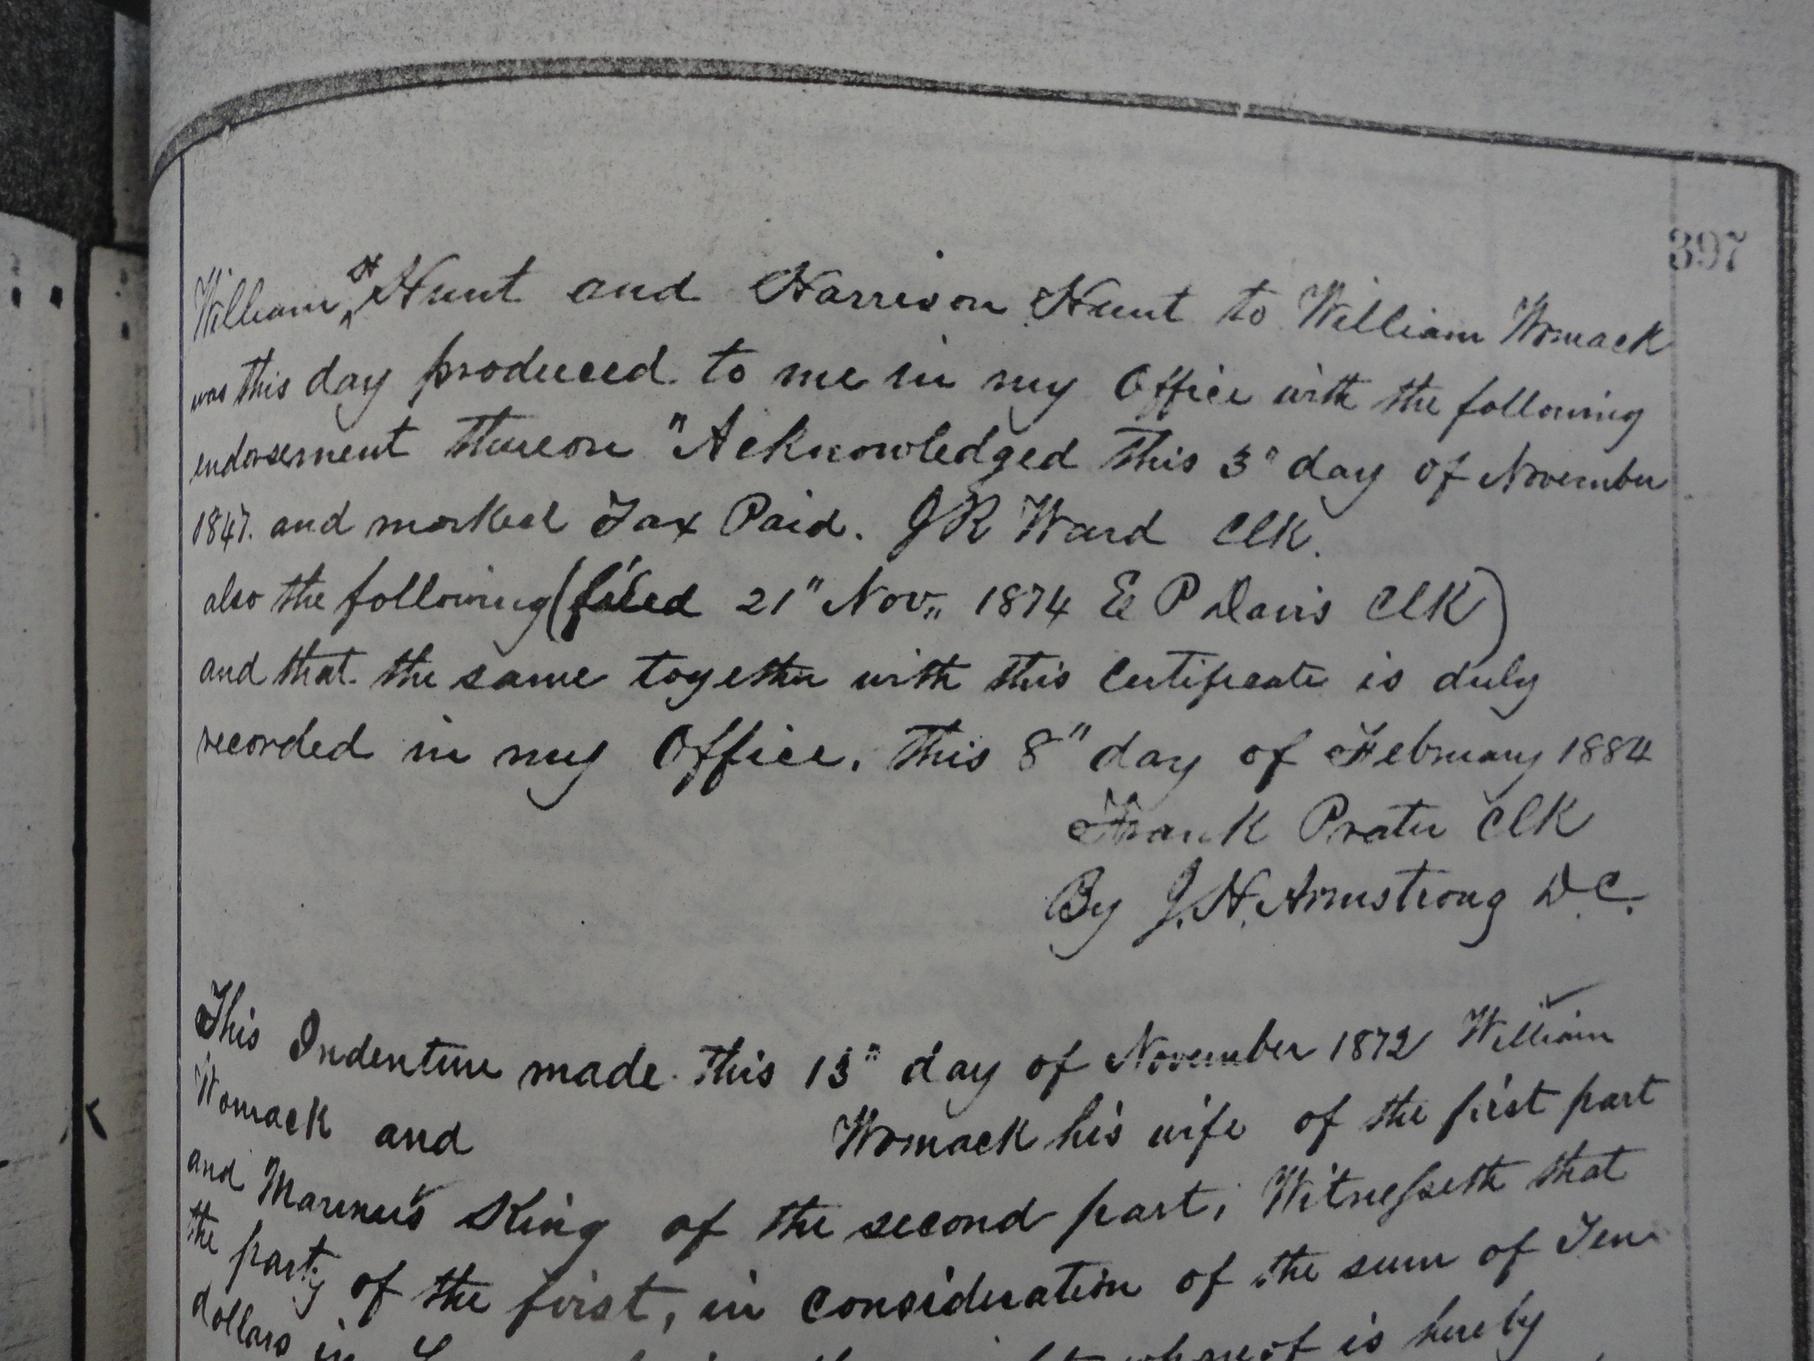 397
William H Hunt and Harrison Hunt to William Womack
was this day produced to me in my Office with the following
endorsement thereon "Acknowledged this 3" day of November
1847. and marked Tax Paid. J R Ward Clk.
also the following (filed 21" Nov,, 1874 E P Davis Clk)
and that the same together with this certificate is duly
recorded in my Office, this 8" day of February 1884
Frank Prater Clk
By J. H. Armstrong D.C.
This Indenture made this 13" day of November 1872 William
Womack and Womack his wife of the first part
and Marinus King of the second part, Witnesseth that
the party of the first, in consideration of the sum of Ten
dollars in whereof is hereby